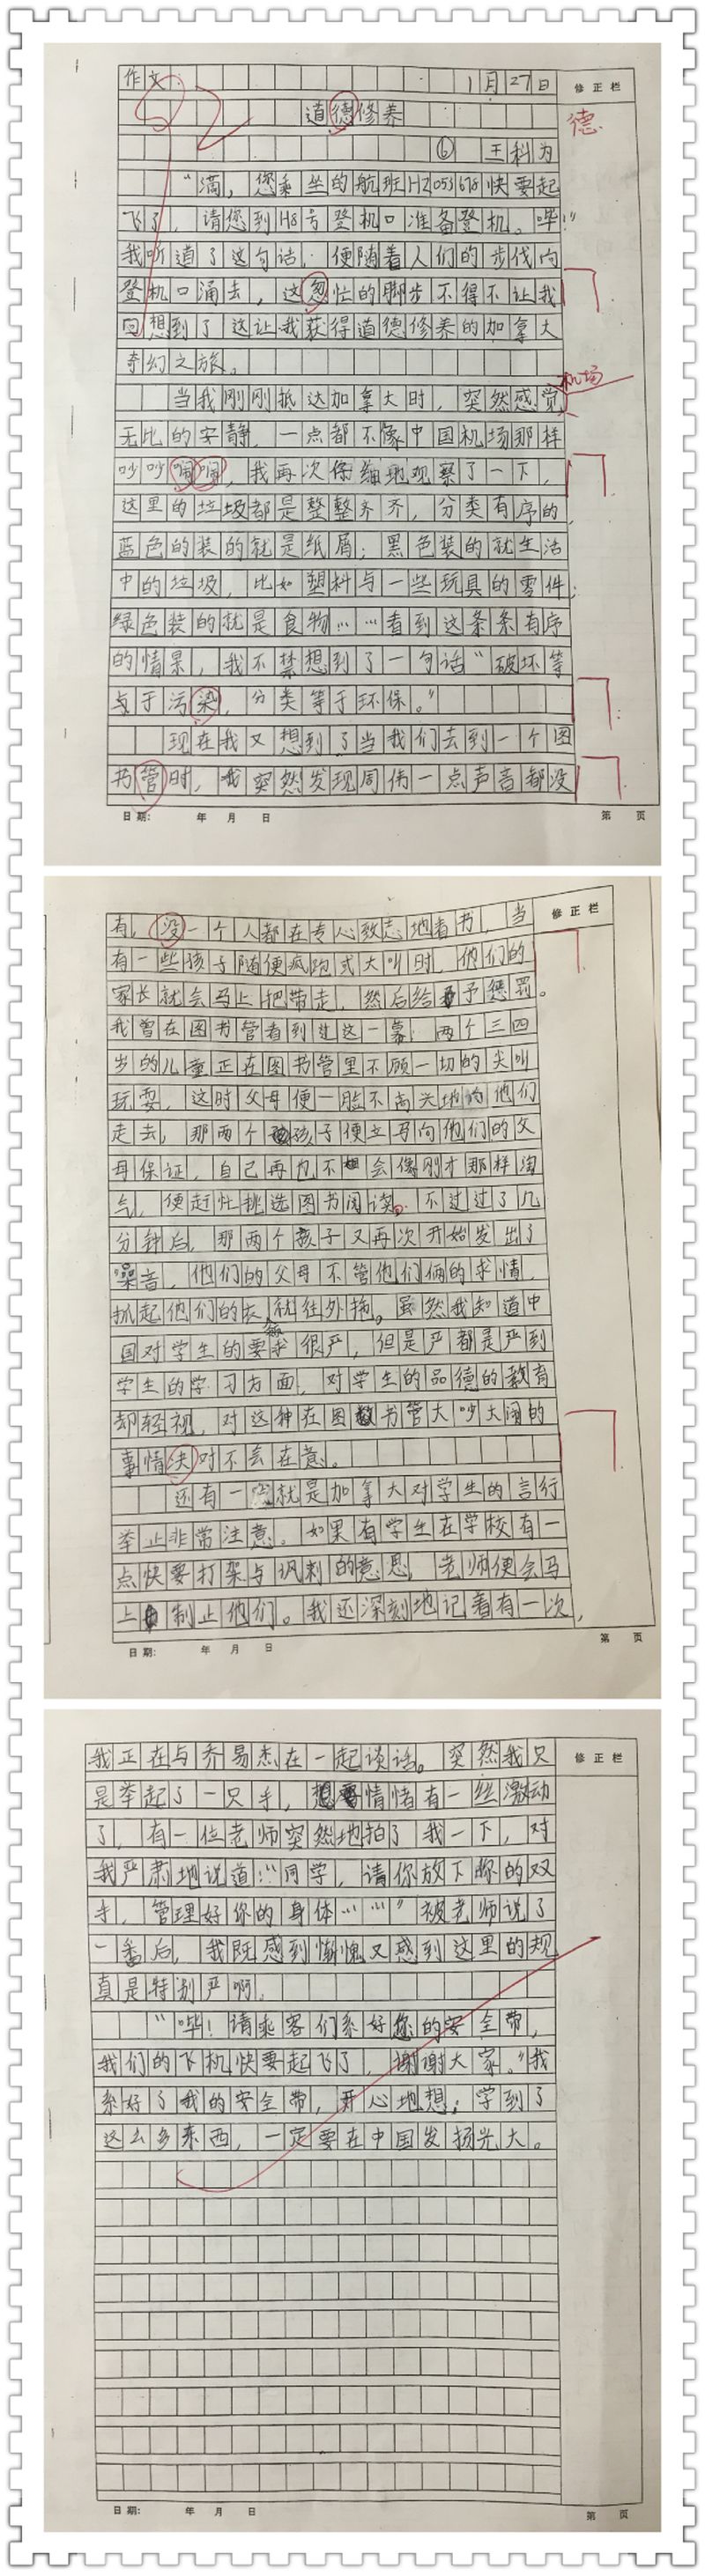 作文： 1月27日 修正栏
道德修养 德
⑥ 王科为
“滴，您乘坐的航班HZ053678快要起
飞了，请您到H8号登机口准备登机。哔！”
我听道了这句话，便随着人们的步伐向
登机口涌去，这忽忙的脚步不得不让我
回想到了这让我获得道德修养的加拿大
奇幻之旅。
机场
当我刚刚抵达加拿大时，突然感觉
无比的安静，一点都不像中国机场那样
吵吵闹闹，我再次仔细地观察了一下，
这里的垃圾都是整整齐齐，分类有序的，
蓝色的装的就是纸屑；黑色装的就生活
中的垃圾，比如塑料与一些玩具的零件；
绿色装的就是食物……看到这条条有序
的情景，我不禁想到了一句话“破坏等
与于污染，分类等于环保。”
现在我又想到了当我们去到一个图
书管时，我突然发现周伟一点声音都没
日期： 年 月 日 第 页
有，没一个人都在专心致志地看书，当 修正栏
有一些孩子随便疯跑式大叫时，他们的
家长就会马上把带走，然后给予惩罚。
我曾在图书管看到过这一幕：两个三四
岁的儿童正在图书管里不顾一切的尖叫
玩耍，这时父母便一脸不高兴地向他们
走去，那两个孩子便立马向他们的父
母保证，自己再也不会像刚才那样淘
气，便赶忙挑选图书阅读。不过过了几
分钟后，那两个孩子又再次开始发出了
噪音，他们的父母不管他们俩的求情，
抓起他们的衣就往外拖。虽然我知道中
国对学生的要求很严，但是严都是严到
学生的学习方面，对学生的品德的教育
却轻视，对这种在图书管大吵大闹的
事情决对不会在意。
还有一就是加拿大对学生的言行
举止非常注意。如果有学生在学校有一
点快要打架与讽刺的意思，老师便会马
上制止他们。我还深刻地记着有一次，
日期： 年 月 日 第 页
我正在与乔易杰在一起谈话。突然我只 修正栏
是举起了一只手，情绪有一丝激动
了，有一位老师突然地拍了我一下，对
我严肃地说道：“同学，请你放下你的双
手，管理好你的身体……”被老师说了
一番后，我既感到惭愧又感到这里的规
真是特别严啊。
“哔！请乘客们系好您的安全带，
我们的飞机快要起飞了，谢谢大家。”我
系好了我的安全带，开心地想：学到了
这么多东西，一定要在中国发扬光大。
日期： 年 月 日 第 页